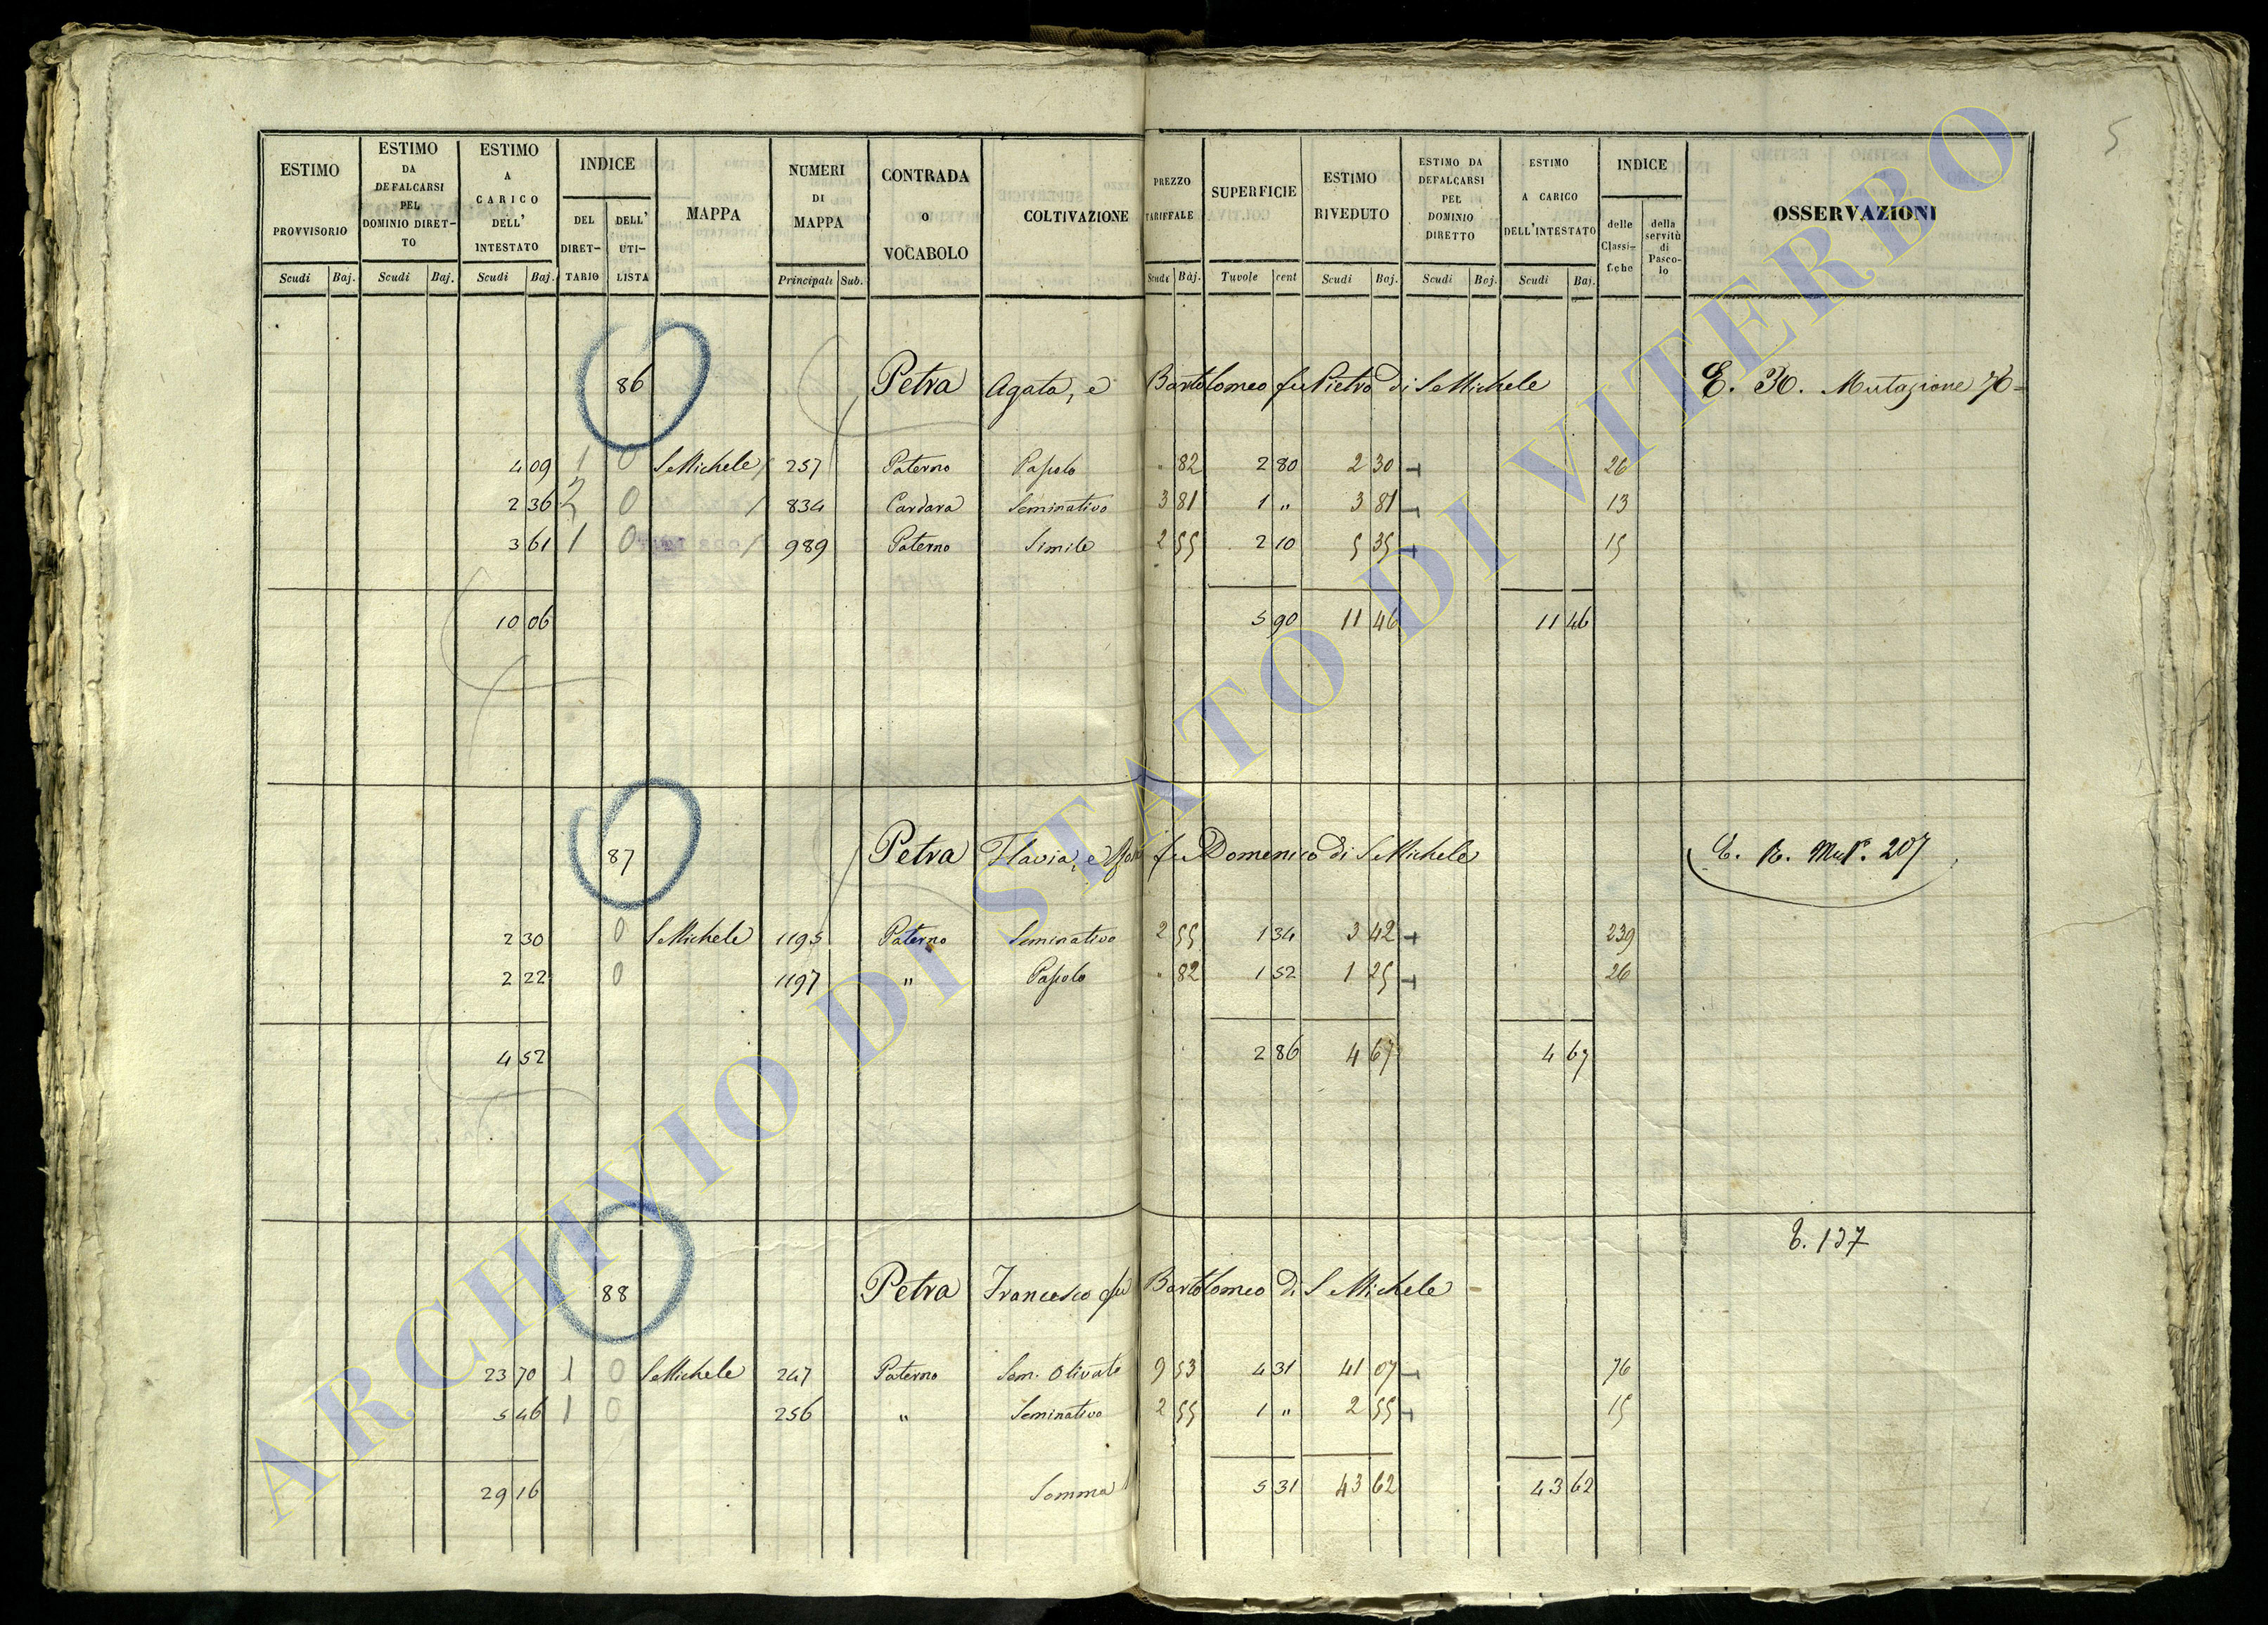 5
ESTIMO PROVVISORIO
ESTIMO DA DEFALCARSI PEL DOMINIO DIRETTO
ESTIMO A CARICO DELL' INTESTATO
INDICE
DEL DIRETTARIO
DELL' UTILISTA
MAPPA
NUMERI DI MAPPA
CONTRADA o VOCABOLO
COLTIVAZIONE
PREZZO TARIFFALE
SUPERFICIE
ESTIMO RIVEDUTO
ESTIMO DA DEFALCARSI PEL DOMINIO DIRETTO
ESTIMO A CARICO DELL'INTESTATO
INDICE
delle Classifiche
della servitù di Pascolo
OSSERVAZIONI
Scudi Baj. Scudi Baj. Scudi Baj. Principali Sub. Scudi Baj. Tavole cent Scudi Baj. Scudi Baj. Scudi Baj.
86 Petra Agata, e Bartolomeo fu Pietro di S. Michele E. 30. Mutazione 76
4 09 1 0 S. Michele 257 Paterno Pascolo " 82 2 80 2 30 26
2 36 2 0 834 Cardara Seminativo 3 81 1 " 3 81 13
3 61 1 0 989 Paterno Simile 2 55 2 10 5 35 15
10 06 5 90 11 46 11 46
87 Petra Flavia, e fu Domenico di S. Michele E. R. Mut. 207
2 30 0 S. Michele 1195 Paterno Seminativo 2 55 1 34 3 42 239
2 22 0 1197 " Pascolo " 82 1 52 1 25 26
4 52 2 86 4 67 4 67
E. 137
88 Petra Francesco fu Bartolomeo di S. Michele
23 70 1 0 S. Michele 247 Paterno Sem. Olivato 9 53 4 31 41 07 76
5 46 1 0 256 " Seminativo 2 55 1 " 2 55 15
29 16 Somma 5 31 43 62 43 62
ARCHIVIO DI STATO DI VITERBO